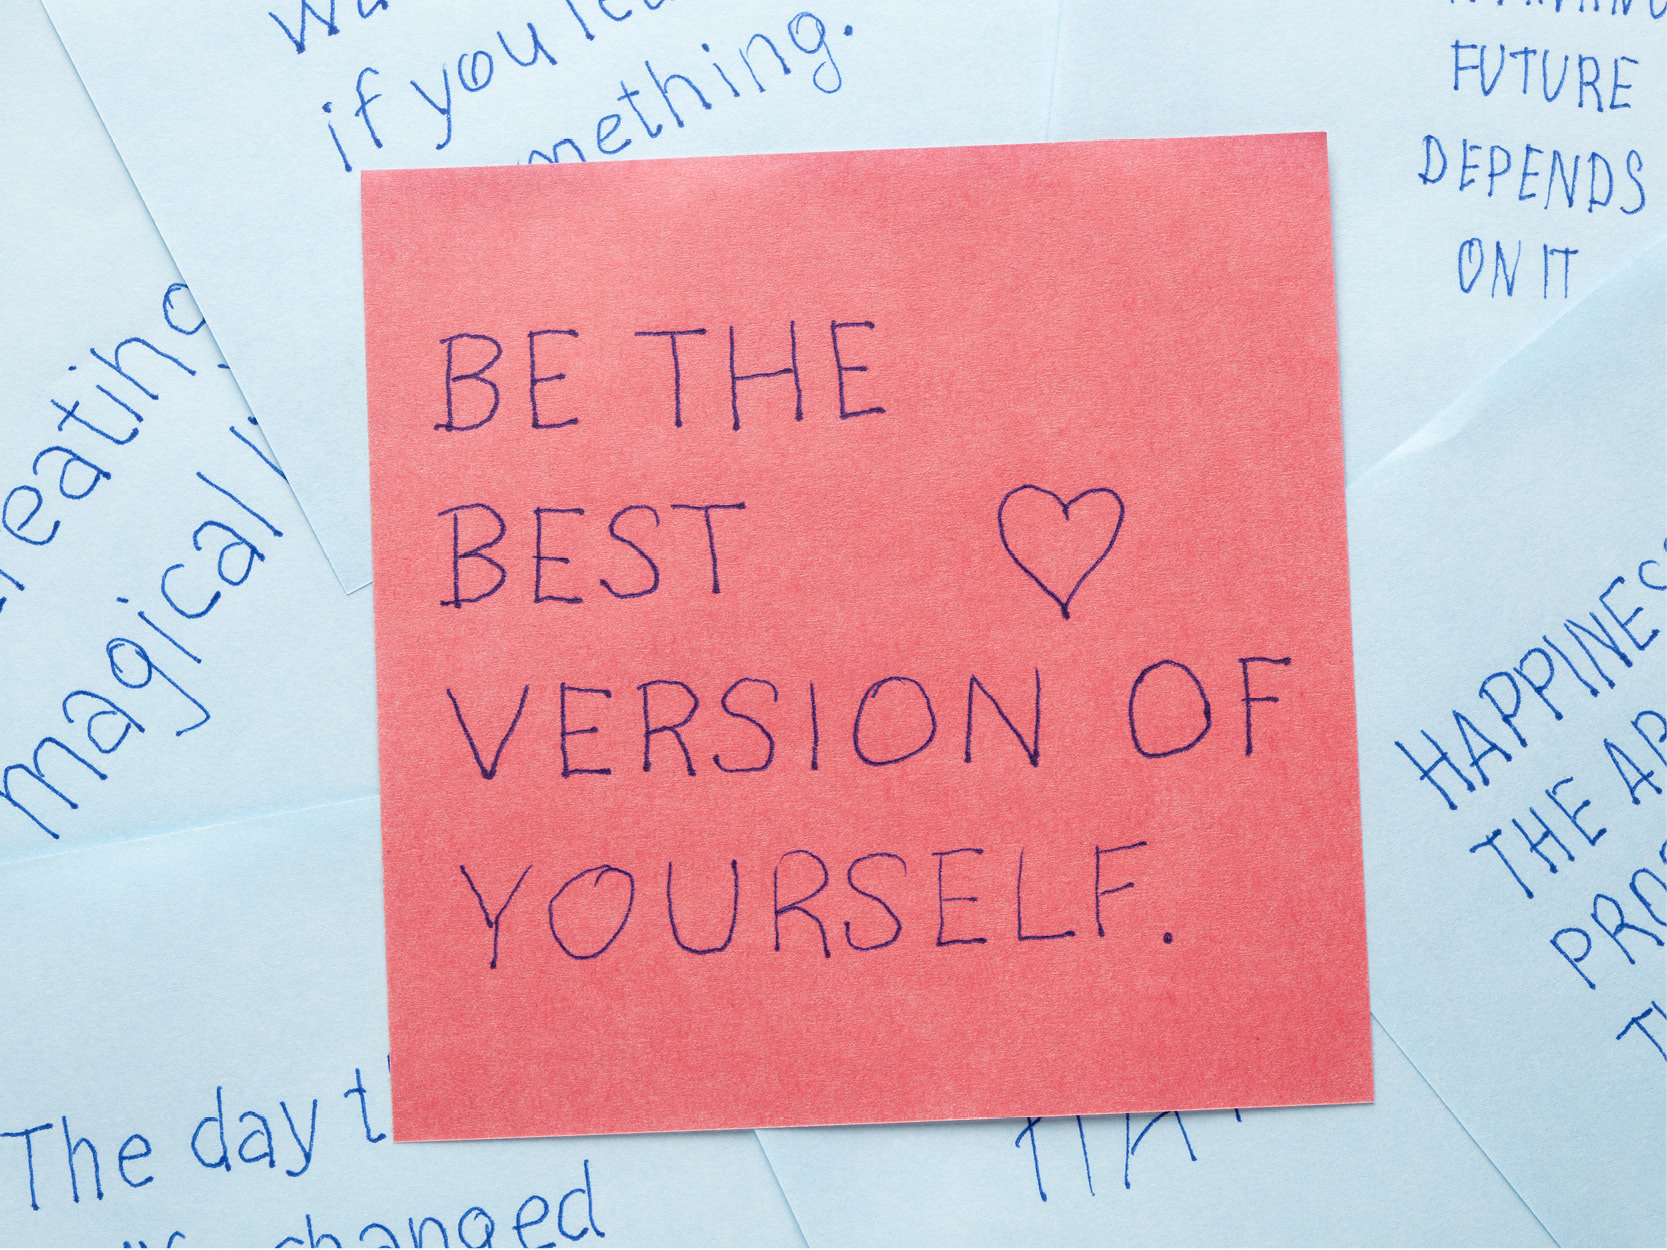 if you
something.
FUTURE
DEPENDS
ON IT
magical
BE THE
BEST
VERSION OF
YOURSELF.
HAPPINESS
THE
The day
changed